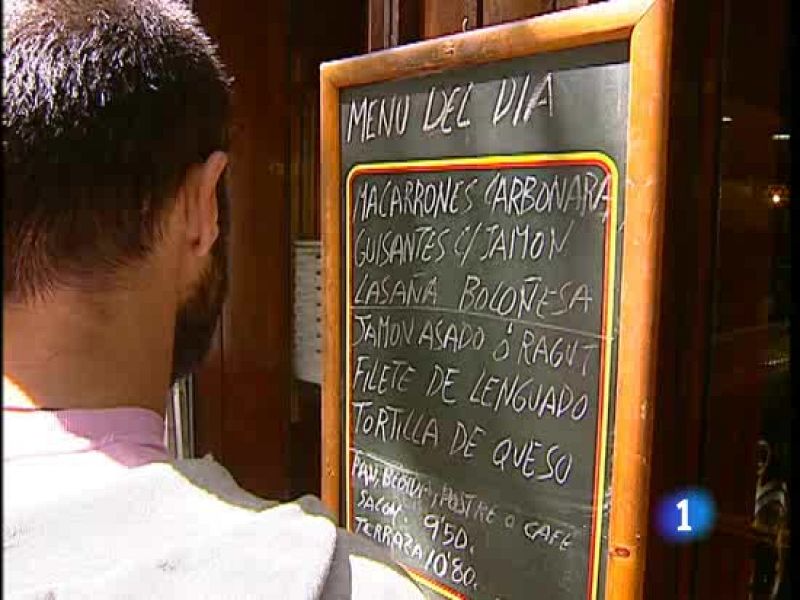 MENU DEL DIA
MACARRONES CARBONARA
GUISANTES C/ JAMON
LASAÑA BOLOÑESA
JAMON ASADO Ó RAGUT
FILETE DE LENGUADO
TORTILLA DE QUESO
PAN, BEBIDA, POSTRE O CAFE
SALON. 9'50.
TERRAZA 10'80.
1